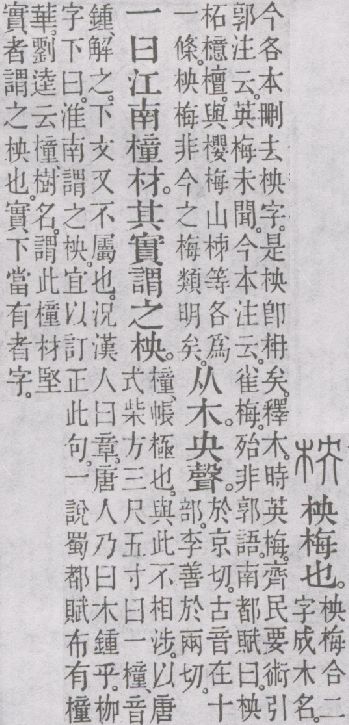 柍 柍梅也。
柍梅合二
字成木名。
今各本刪去柍字。是柍卽柟矣。釋木。時英梅。齊民要術引
郭注云。英梅未聞。今本注云。雀梅。殆非郭語。南都賦曰。柍
柘檍檀。與櫻梅山柿等各爲
一條。柍梅非今之梅類明矣。
从木央聲。
於京切。古音在十
部。李善於兩切。
一曰江南橦材。其實謂之柍。
橦、帳極也。與此不相涉。以唐
式柴方三尺五寸曰一橦、音
鍾、解之。下文又不屬也。況漢人曰章。唐人乃曰木鍾乎。柳
字下曰。淮南謂之柍。宜以訂正此句。一說蜀都賦布有橦
華。劉逵云橦、樹名。謂此橦材堅
實者謂之柍也。實下當有者字。